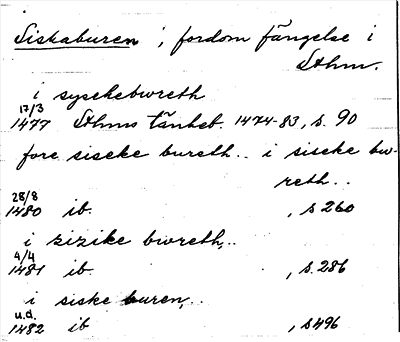 Siskaburen ; fordom fängelse i
Sthm.
i sysekebwreth
17/3
1477 Sthms tänkeb. 1474-83, s. 90
fore siseke bureth.. i siseke bw-
reth..
28/8
1480 ib. , s 260
i zizike bwreth,..
4/4
1481 ib. , s. 286
i siske buren,..
u.d.
1482 ib , s 496